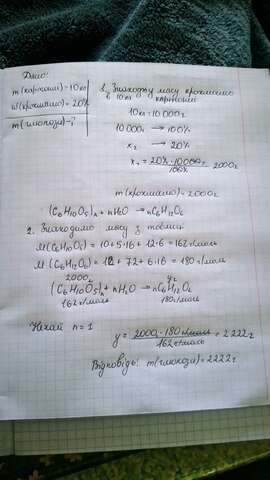 Дано:
m(картоплі)=10кг
W(крохмалю)=20%
m(глюкози)-?
1. Знаходжу масу крохмалю
в 10кг картоплі
10кг=10000г
10000г → 100%
x г → 20%
x г = 20%·10000г / 100% = 2000г
m(крохмалю)=2000г
(C6H10O5)n+nH2O → nC6H12O6
2. Знаходимо масу з таблиці
M(C6H10O5)=10+5·16+12·6=162г/моль
M(C6H12O6)=12+72+6·16=180г/моль
2000г yг
(C6H10O5)n+nH2O → nC6H12O6
162г/моль 180г/моль
Нехай n=1
y = 2000г·180г/моль / 162г/моль = 2222г
Відповідь: m(глюкози)=2222г